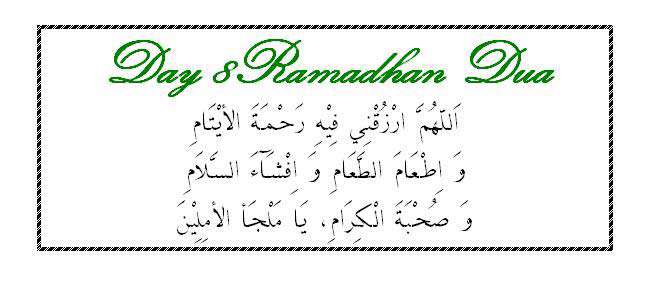 Day 8 Ramadhan Dua
اَللّهُمَّ ارْزُقْنِي فِيْهِ رَحْمَةَ الأَيْتَامِ
وَ اِطْعَامَ الطَّعَامِ وَ اِفْشَآءَ السَّلَامِ
وَ صُحْبَةَ الْكِرَامِ، يَا مَلْجَاَ الأمِلِيْنَ